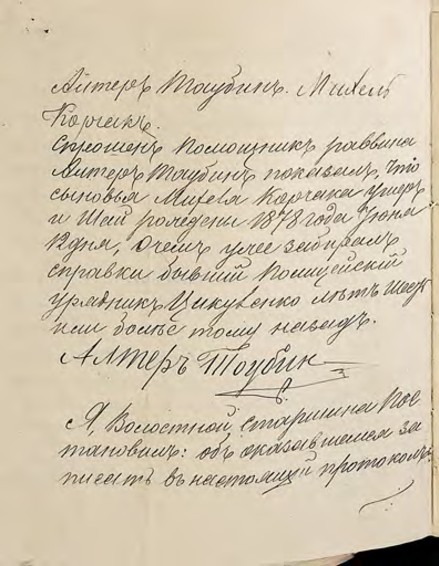 Алтеръ Таубинъ. Михель
Корчакъ.
Спрошенъ помощникъ раввина
Алтеръ Таубинъ показалъ, что
сыновья Михеля Корчака
и Шай рождены 1878 года Iюня
12 дня, о чемъ уже забиралъ
справки бывшiй Полицейскiй
урядникъ лѣтъ шесть
или болѣе тому назадъ.
Алтеръ Тоубин
Я, Волостной старшина Пос
тановилъ: объ оказавшемся за
писать въ настоящiй протоколъ.